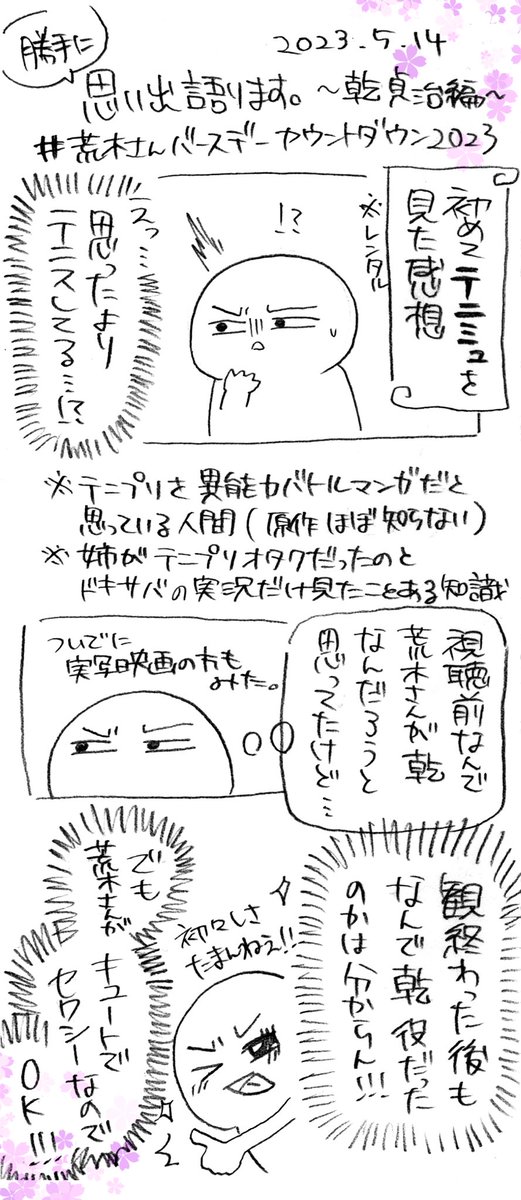 勝手に
2023.5.14
思い出語ります。～乾貞治編～
#荒木さんバースデーカウントダウン2023
初めてテニミュを
見た感想
※レンタル
!?
えっ…
思ったより
テニスしてる…!?
※テニプリを異能力バトルマンガだと
思っている人間(原作ほぼ知らない)
※姉がテニプリオタクだったのと
ドキサバの実況だけ見たことある知識
視聴前なんで
荒木さんが乾
なんだろうと
思ってたけど…
ついでに
実写映画の方も
みた。
観終わった後も
なんで乾役だった
のかは分からん!!!
初々しさ
たまんねぇ!!
でも
荒木さんが
キュートで
セクシーなので
OK!!!